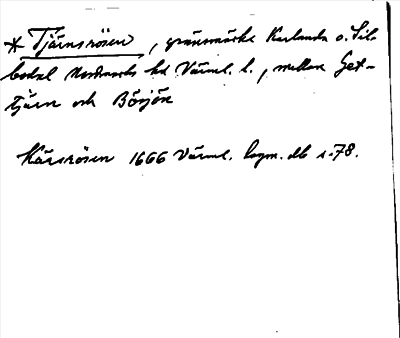 * Tjärnsrösen, gränsmärke Karlanda o. Sil-
bodal Nordmarks hd Värml. l., mellan Get-
tjärn och Börjön
Kärsrösen 1666 Värml. lagm. db s. 78.